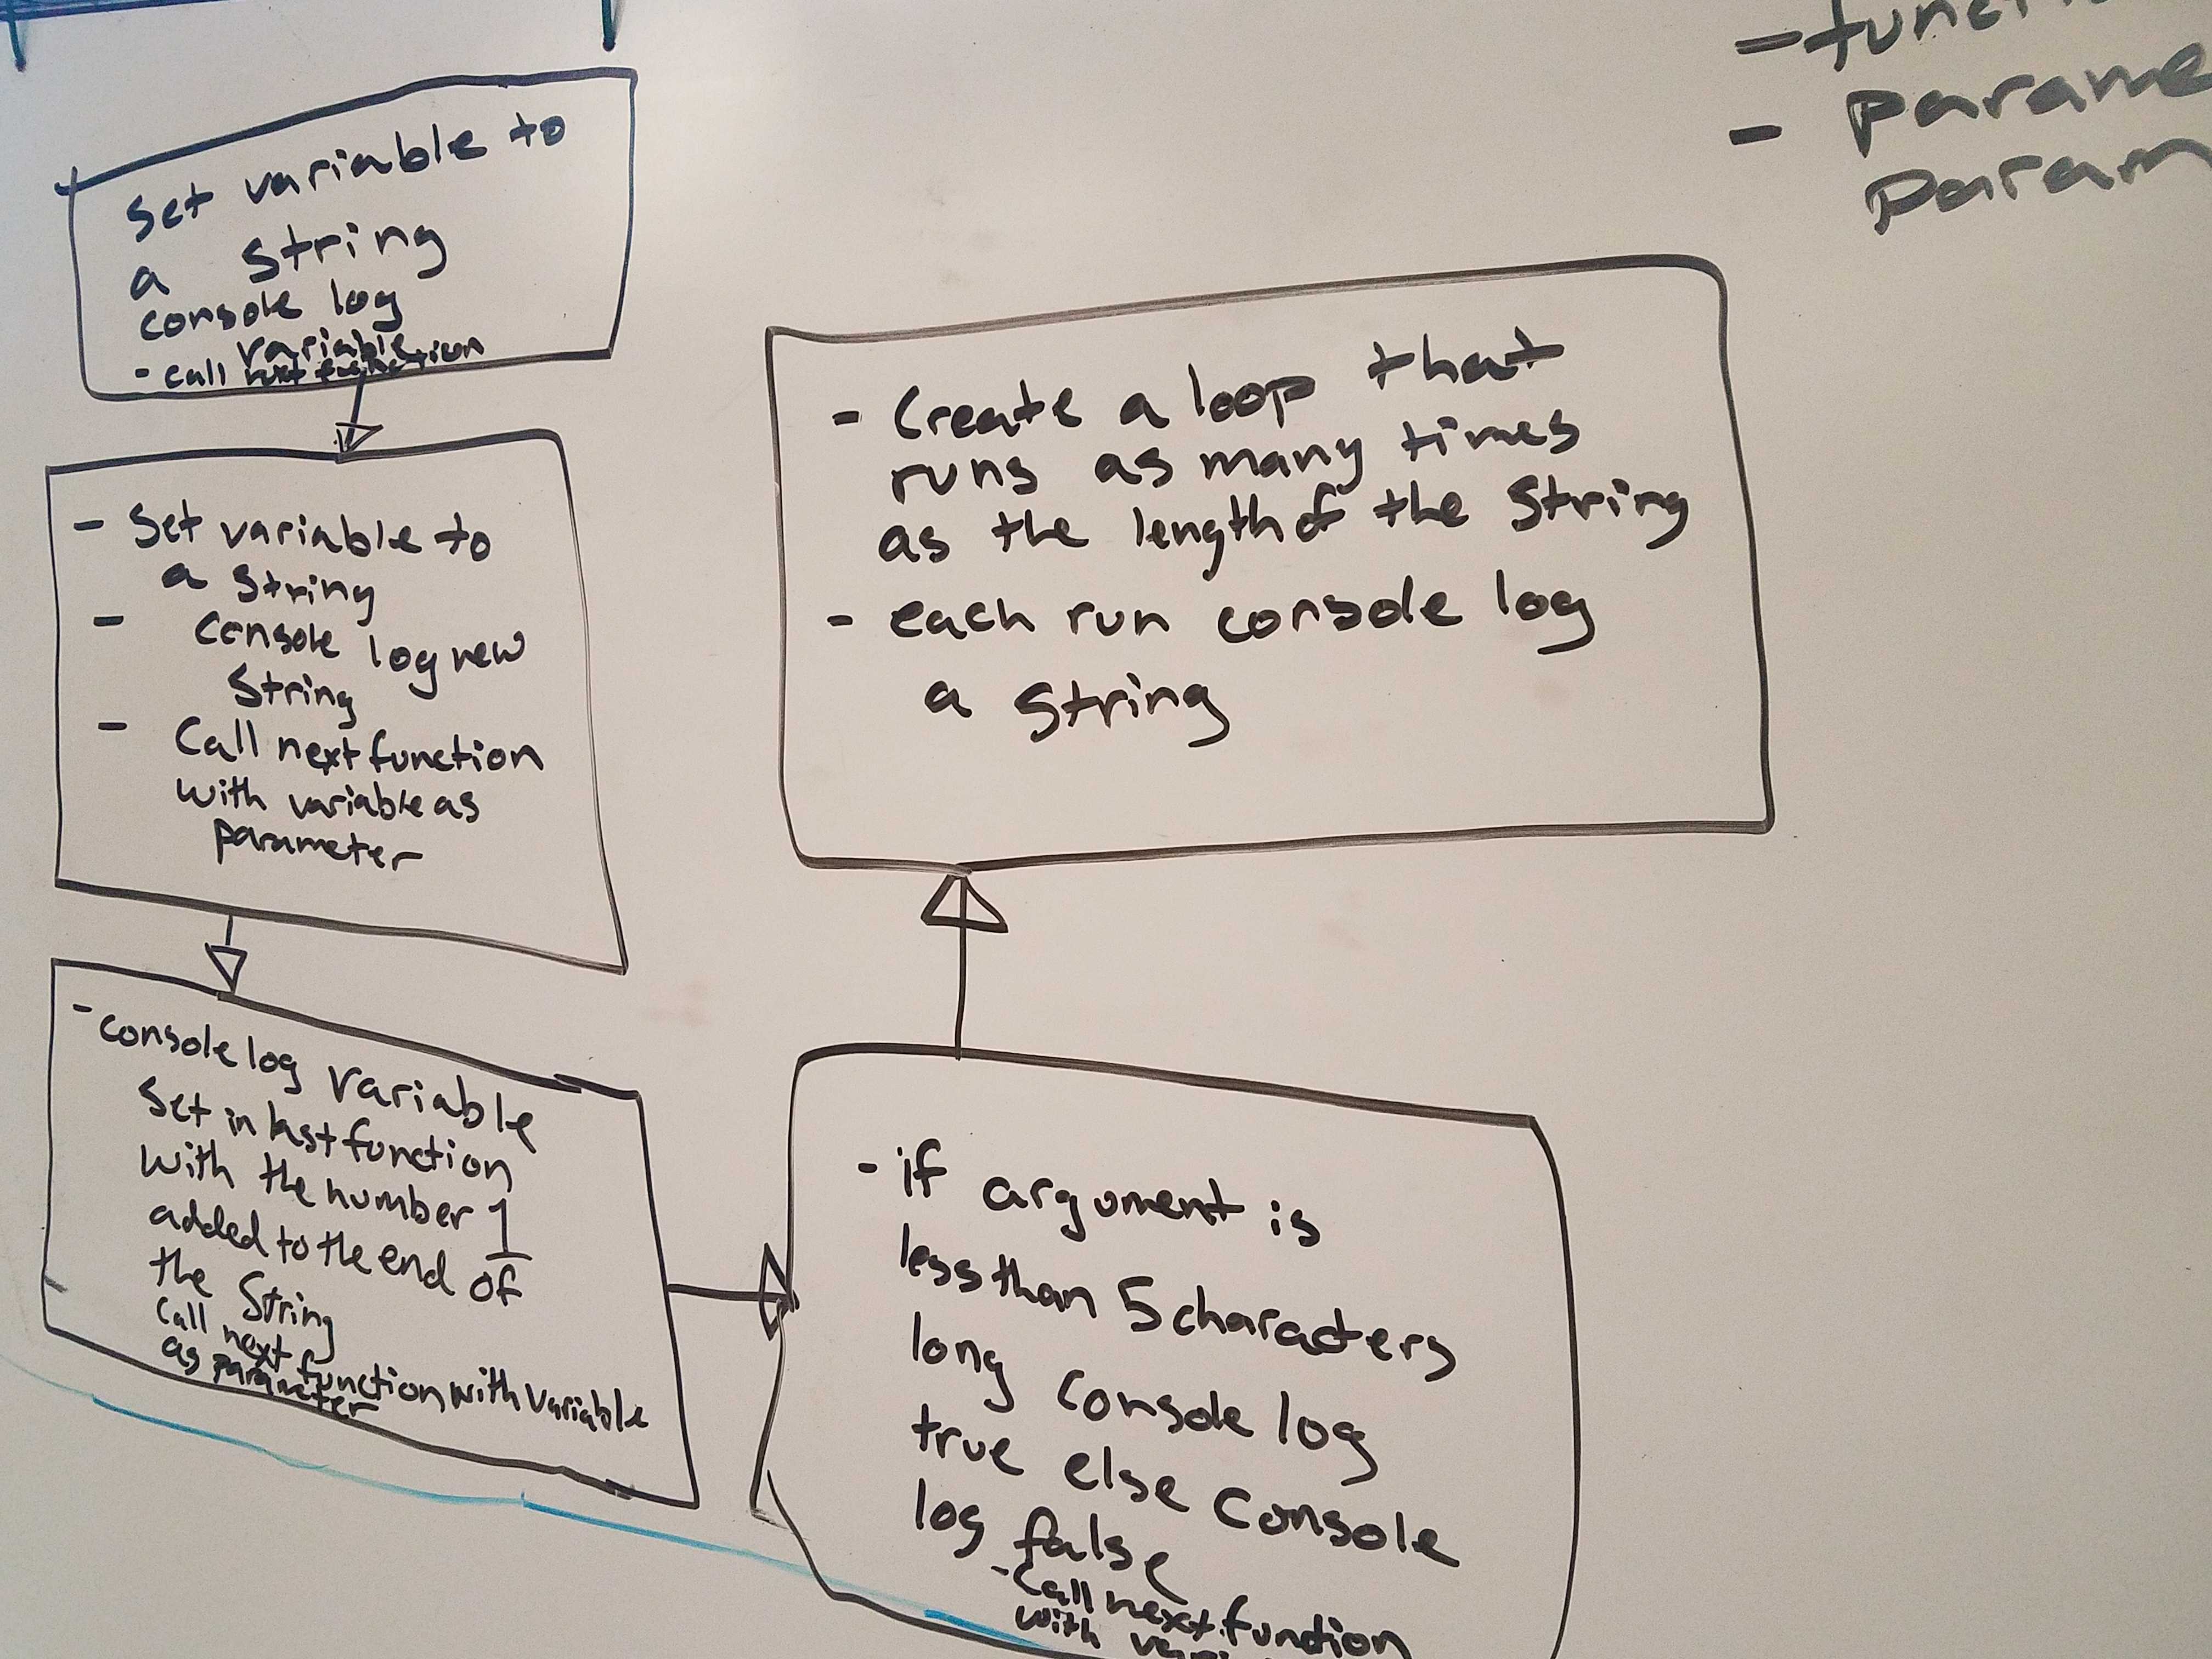 Set variable to
a String
console log
variable
- call next function
- Set variable to
a String
- console log new
String
- Call next function
with variable as
parameter
- console log variable
Set in last function
with the number 1
added to the end of
the String
Call next function with variable
as parameter
- if argument is
less than 5 characters
long console log
true else Console
log false
- Call next function
with
- Create a loop that
runs as many times
as the length of the String
- each run console log
a String
- 
- Parame
Param